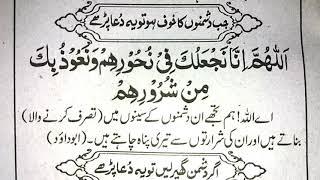 جب دشمنوں کا خوف ہو تو یہ دُعا پڑھے
اَللّٰهُمَّ اِنَّا نَجْعَلُكَ فِىْ نُحُوْرِهِمْ وَنَعُوْذُ بِكَ
مِنْ شُرُوْرِهِمْ
اے اللہ! ہم تجھے ان دشمنوں کے سینوں میں (تصرف کرنے والا)
بناتے ہیں اور ان کی شرارتوں سے تیری پناہ چاہتے ہیں۔ (ابوداؤد)
اگر دشمن گھیر لیں تو یہ دُعا پڑھے